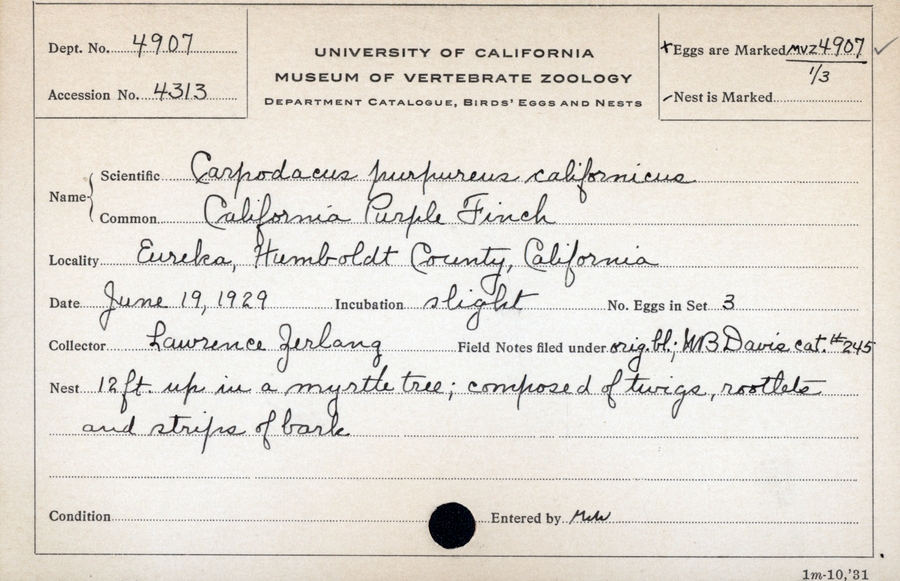 Dept. No. 4907
UNIVERSITY OF CALIFORNIA
MUSEUM OF VERTEBRATE ZOOLOGY
DEPARTMENT CATALOGUE, BIRDS' EGGS AND NESTS
Eggs are Marked MVZ 4907
1/3
Accession No. 4313
Nest is Marked
Name
Scientific Carpodacus purpureus californicus
Common California Purple Finch
Locality Eureka, Humboldt County, California
Date June 19, 1929 Incubation slight No. Eggs in Set 3
Collector Lawrence Zerlang Field Notes filed under orig. bl.; WB Davis cat. #245
Nest 12 ft. up in a myrtle tree; composed of twigs, rootlets
and strips of bark
Condition Entered by
1m-10,'31